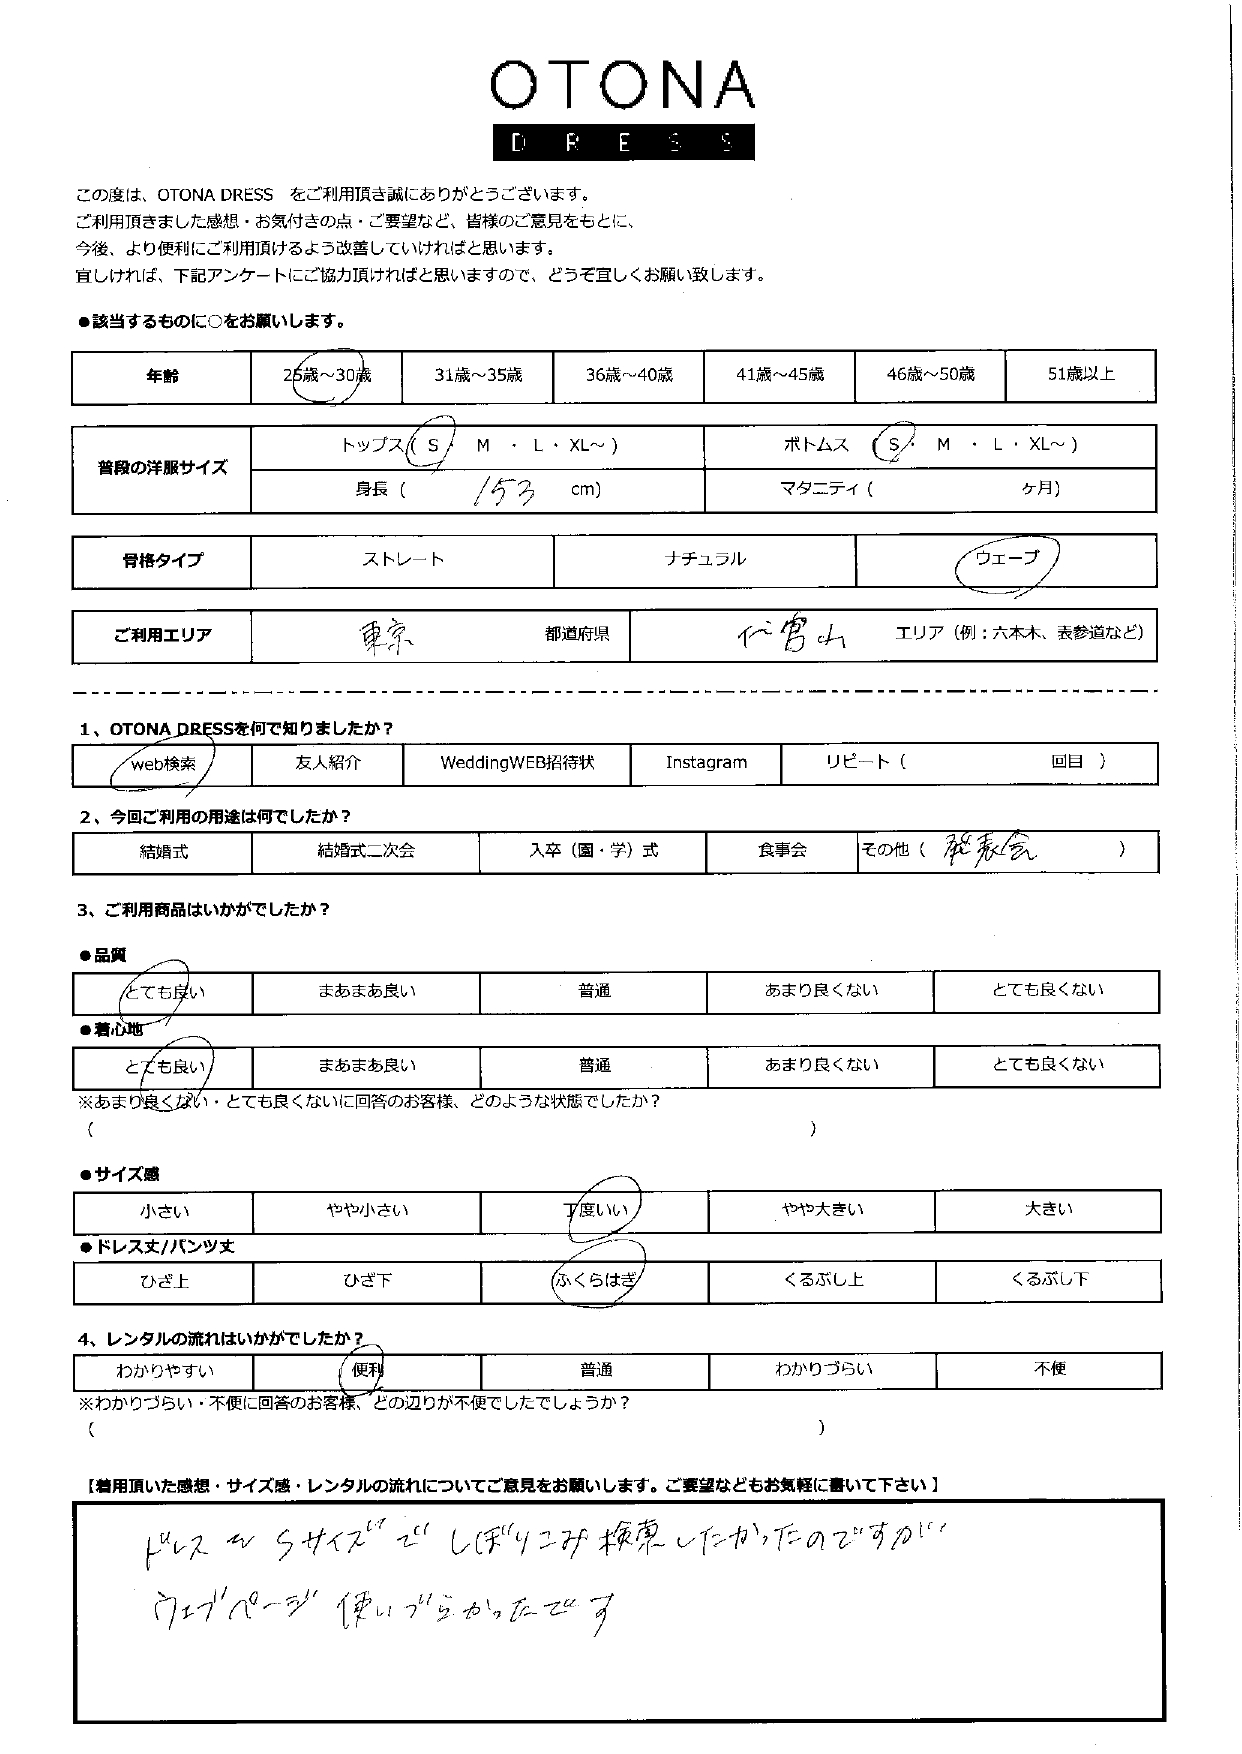 OTONA
DRESS
この度は、OTONA DRESS をご利用頂き誠にありがとうございます。
ご利用頂きました感想・お気付きの点・ご要望など、皆様のご意見をもとに、
今後、より便利にご利用頂けるよう改善していければと思います。
宜しければ、下記アンケートにご協力頂ければと思いますので、どうぞ宜しくお願い致します。
●該当するものに○をお願いします。
年齢 25歳～30歳 31歳～35歳 36歳～40歳 41歳～45歳 46歳～50歳 51歳以上
普段の洋服サイズ トップス( S ・ M ・ L ・ XL～ ) ボトムス ( S ・ M ・ L ・ XL～ )
身長 ( 153 cm) マタニティ ( ヶ月)
骨格タイプ ストレート ナチュラル ウェーブ
ご利用エリア 東京 都道府県 代官山 エリア（例：六本木、表参道など）
1、OTONA DRESSを何で知りましたか？
web検索 友人紹介 WeddingWEB招待状 Instagram リピート（ 回目 ）
2、今回ご利用の用途は何でしたか？
結婚式 結婚式二次会 入卒（園・学）式 食事会 その他（ 発表会 ）
3、ご利用商品はいかがでしたか？
●品質
とても良い まあまあ良い 普通 あまり良くない とても良くない
●着心地
とても良い まあまあ良い 普通 あまり良くない とても良くない
※あまり良くない・とても良くないに回答のお客様、どのような状態でしたか？
( )
●サイズ感
小さい やや小さい 丁度いい やや大きい 大きい
●ドレス丈/パンツ丈
ひざ上 ひざ下 ふくらはぎ くるぶし上 くるぶし下
4、レンタルの流れはいかがでしたか？
わかりやすい 便利 普通 わかりづらい 不便
※わかりづらい・不便に回答のお客様、どの辺りが不便でしたでしょうか？
( )
【着用頂いた感想・サイズ感・レンタルの流れについてご意見をお願いします。ご要望などもお気軽に書いて下さい】
ドレスを Sサイズで しぼりこみ 検索したかったのですが
ウェブページ 使いづらかったです